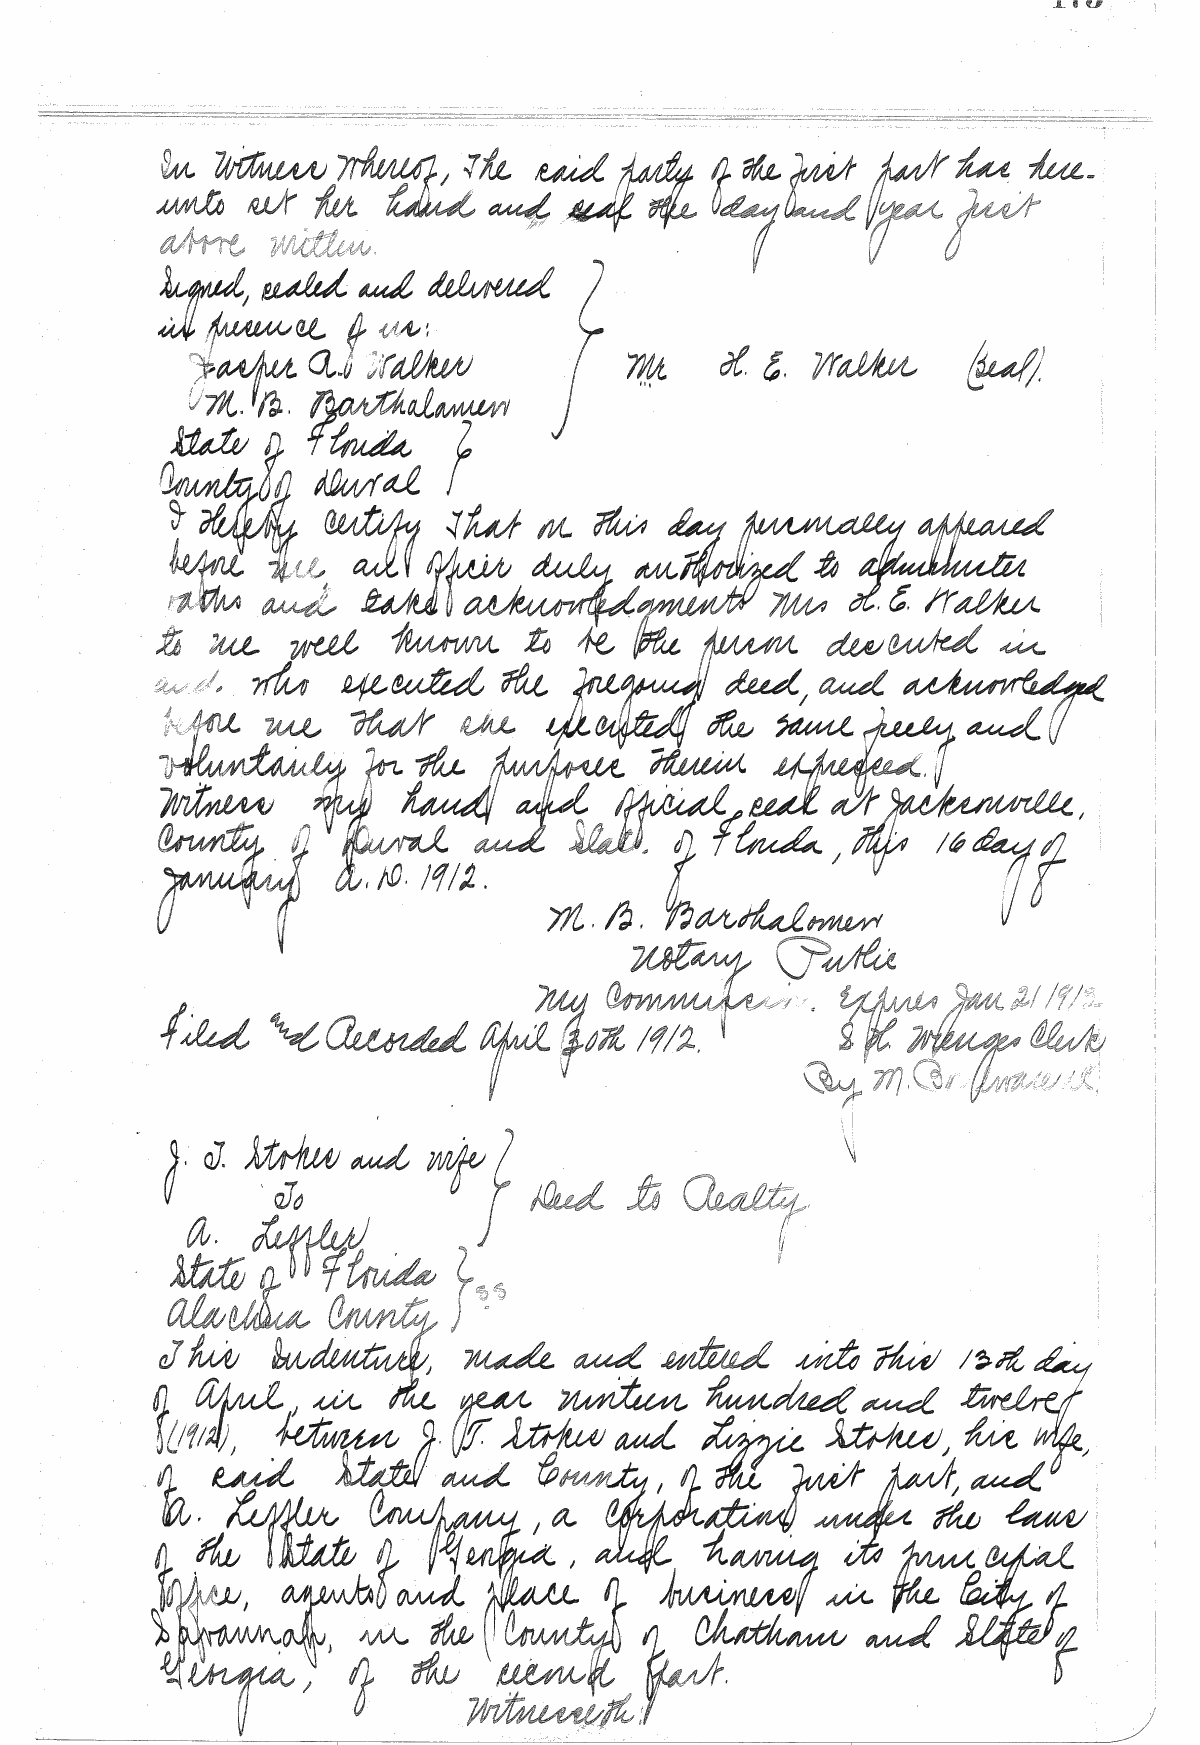 In Witness Whereof, The said party of the first part has here-
unto set her hand and seal the day and year first
above written.
Signed, sealed and delivered
in presence of us:
Jasper A. Walker
Mr H. E. Walker (Seal).
M. B. Barthalomew
State of Florida
County of Duval
I Hereby Certify That on this day personally appeared
before me, an officer duly authorized to administer
oaths and take acknowledgments Mrs H. E. Walker
to me well known to be the person described in
and who executed the foregoing deed, and acknowledged
before me that she executed the same freely and
voluntarily for the purposes therein expressed.
Witness my hand and official seal at Jacksonville,
County of Duval and State of Florida, this 16 day of
January A.D. 1912.
M. B. Barthalomew
Notary Public
My Commission Expires Jan 21 191
Filed and Recorded April 30th 1912.
S. H. Wienges Clerk
By M.
J. T. Stokes and wife
To
Deed to Realty
A. Leffler
State of Florida
SS
Alachua County
This Indenture, made and entered into this 13th day
of April, in the year nineteen hundred and twelve
(1912), between J. T. Stokes and Lizzie Stokes, his wife,
of said State and County, of the first part, and
A. Leffler Company, a corporation under the laws
of the State of Georgia, and having its principal
office, agents and place of business in the City of
Savannah, in the County of Chatham and State of
Georgia, of the second part.
Witnesseth: